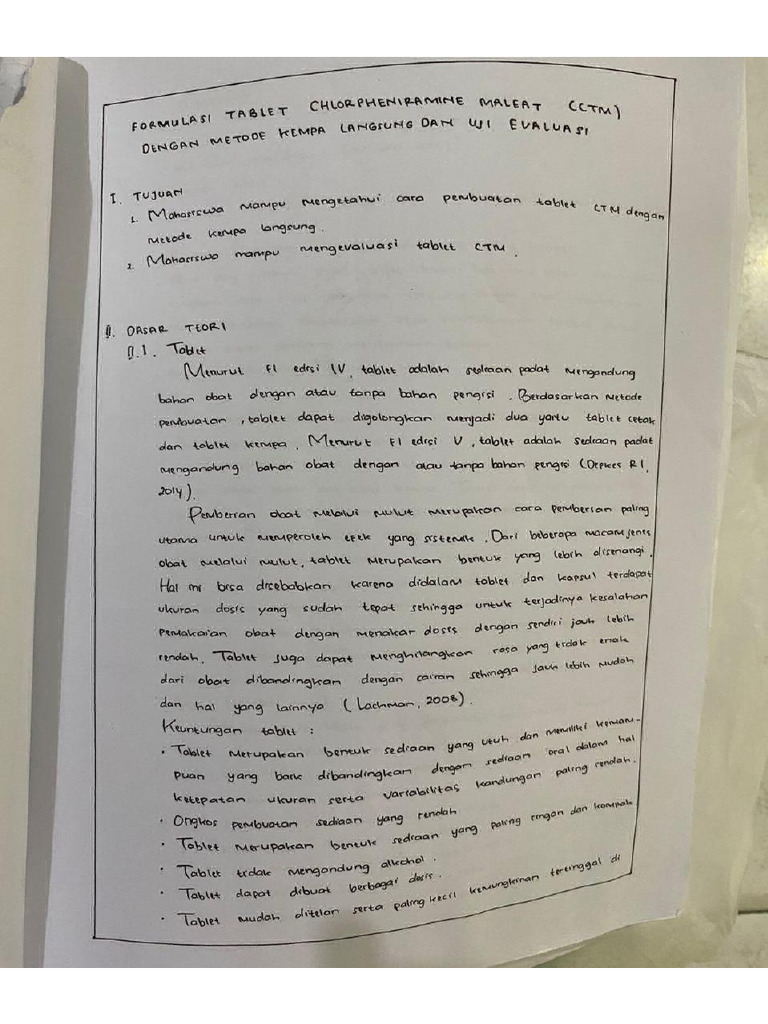 FORMULASI TABLET CHLORPHENIRAMINE MALEAT (CTM)
DENGAN METODE KEMPA LANGSUNG DAN UJI EVALUASI
I. TUJUAN
1. Mahasiswa mampu mengetahui cara pembuatan tablet CTM dengan
metode kempa langsung.
2. Mahasiswa mampu mengevaluasi tablet CTM.
II. DASAR TEORI
II.1. Tablet
Menurut FI edisi IV, tablet adalah sediaan padat mengandung
bahan obat dengan atau tanpa bahan pengisi. Berdasarkan metode
pembuatan, tablet dapat digolongkan menjadi dua yaitu tablet cetak
dan tablet kempa. Menurut FI edisi V, tablet adalah sediaan padat
mengandung bahan obat dengan atau tanpa bahan pengisi (Depkes RI,
2014).
Pemberian obat melalui mulut merupakan cara pemberian paling
utama untuk memperoleh efek yang sistemik. Dari beberapa macam jenis
obat melalui mulut, tablet merupakan bentuk yang lebih disenangi.
Hal ini bisa disebabkan karena didalam tablet dan kapsul terdapat
ukuran dosis yang sudah tepat sehingga untuk terjadinya kesalahan
pemakaian obat dengan menakar dosis dengan sendiri jauh lebih
rendah. Tablet juga dapat menghilangkan rasa yang tidak enak
dari obat dibandingkan dengan cairan sehingga jauh lebih mudah
dan hal yang lainnya (Lachman, 2008).
Keuntungan tablet :
• Tablet merupakan bentuk sediaan yang utuh dan memiliki kemam-
puan yang baik dibandingkan dengan sediaan oral dalam hal
ketepatan ukuran serta variabilitas kandungan paling rendah.
• Ongkos pembuatan sediaan yang rendah
• Tablet merupakan bentuk sediaan yang paling ringan dan kompak
• Tablet tidak mengandung alkohol.
• Tablet dapat dibuat berbagai dosis.
• Tablet mudah ditelan serta paling kecil kemungkinan tertinggal di